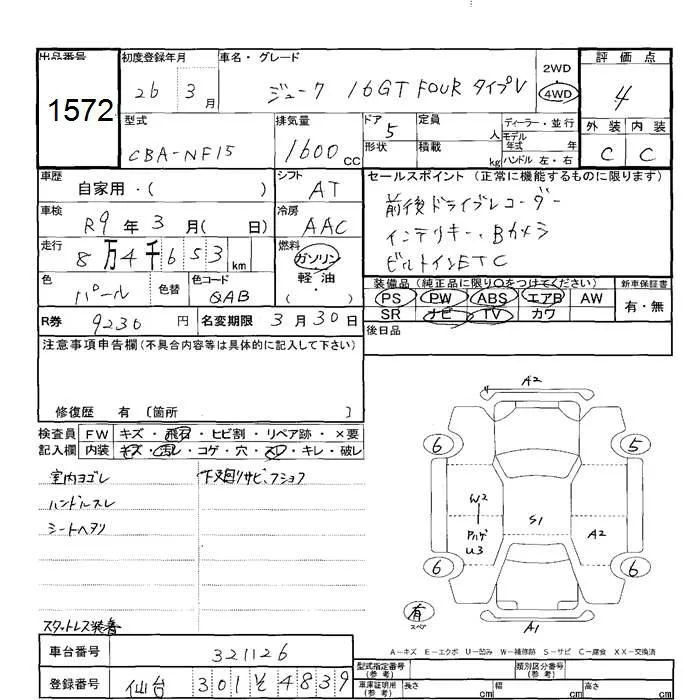 出品番号
1572
初度登録年月
26 3月
車名・グレード
ジューク 16GT FOUR タイプV
2WD
4WD
評価点
4
外装 内装
C C
型式
CBA-NF15
排気量
1600cc
ドア 5
形状
定員 人
積載 kg
ディーラー・並行
モデル年式 年
ハンドル 左・右
車歴
自家用・( )
シフト
AT
車検
R9年3月( 日)
冷房
AAC
走行
8万4千653km
燃料
ガソリン
軽油
・
色
パール
色替
色コード
QAB
R券 9230円
名変期限 3月30日
セールスポイント(正常に機能するものに限ります)
前後ドライブレコーダー
インテリキー、Bカメラ
ビルトインETC
装備品(純正品に限り○をつけてください)
PS PW ABS エアB AW
SR ナビ TV カワ
新車保証書
有・無
後日品
注意事項申告欄(不具合内容等は具体的に記入して下さい)
修復歴 有〔箇所 〕
検査員記入欄
FW キズ・飛石・ヒビ割・リペア跡・×要
内装 キズ・汚レ・コゲ・穴・スレ・キレ・破レ
室内ヨゴレ
ハンドルスレ
シートヘタリ
スタットレス装着
下叉回リサビ、フショフ
A2
6 5
W2
アトハゲ
U3
S1
A2
6 6
有
スペア
A1
A-キズ E-エクボ U-凹み W-補修跡 S-サビ C-腐食 XX-交換済
車台番号
321126
登録番号
仙台 301 そ 4839
型式指定番号
(参考)
類別区分番号
(参考)
車庫証明記録
(参考)
長さ cm
幅 cm
高さ cm